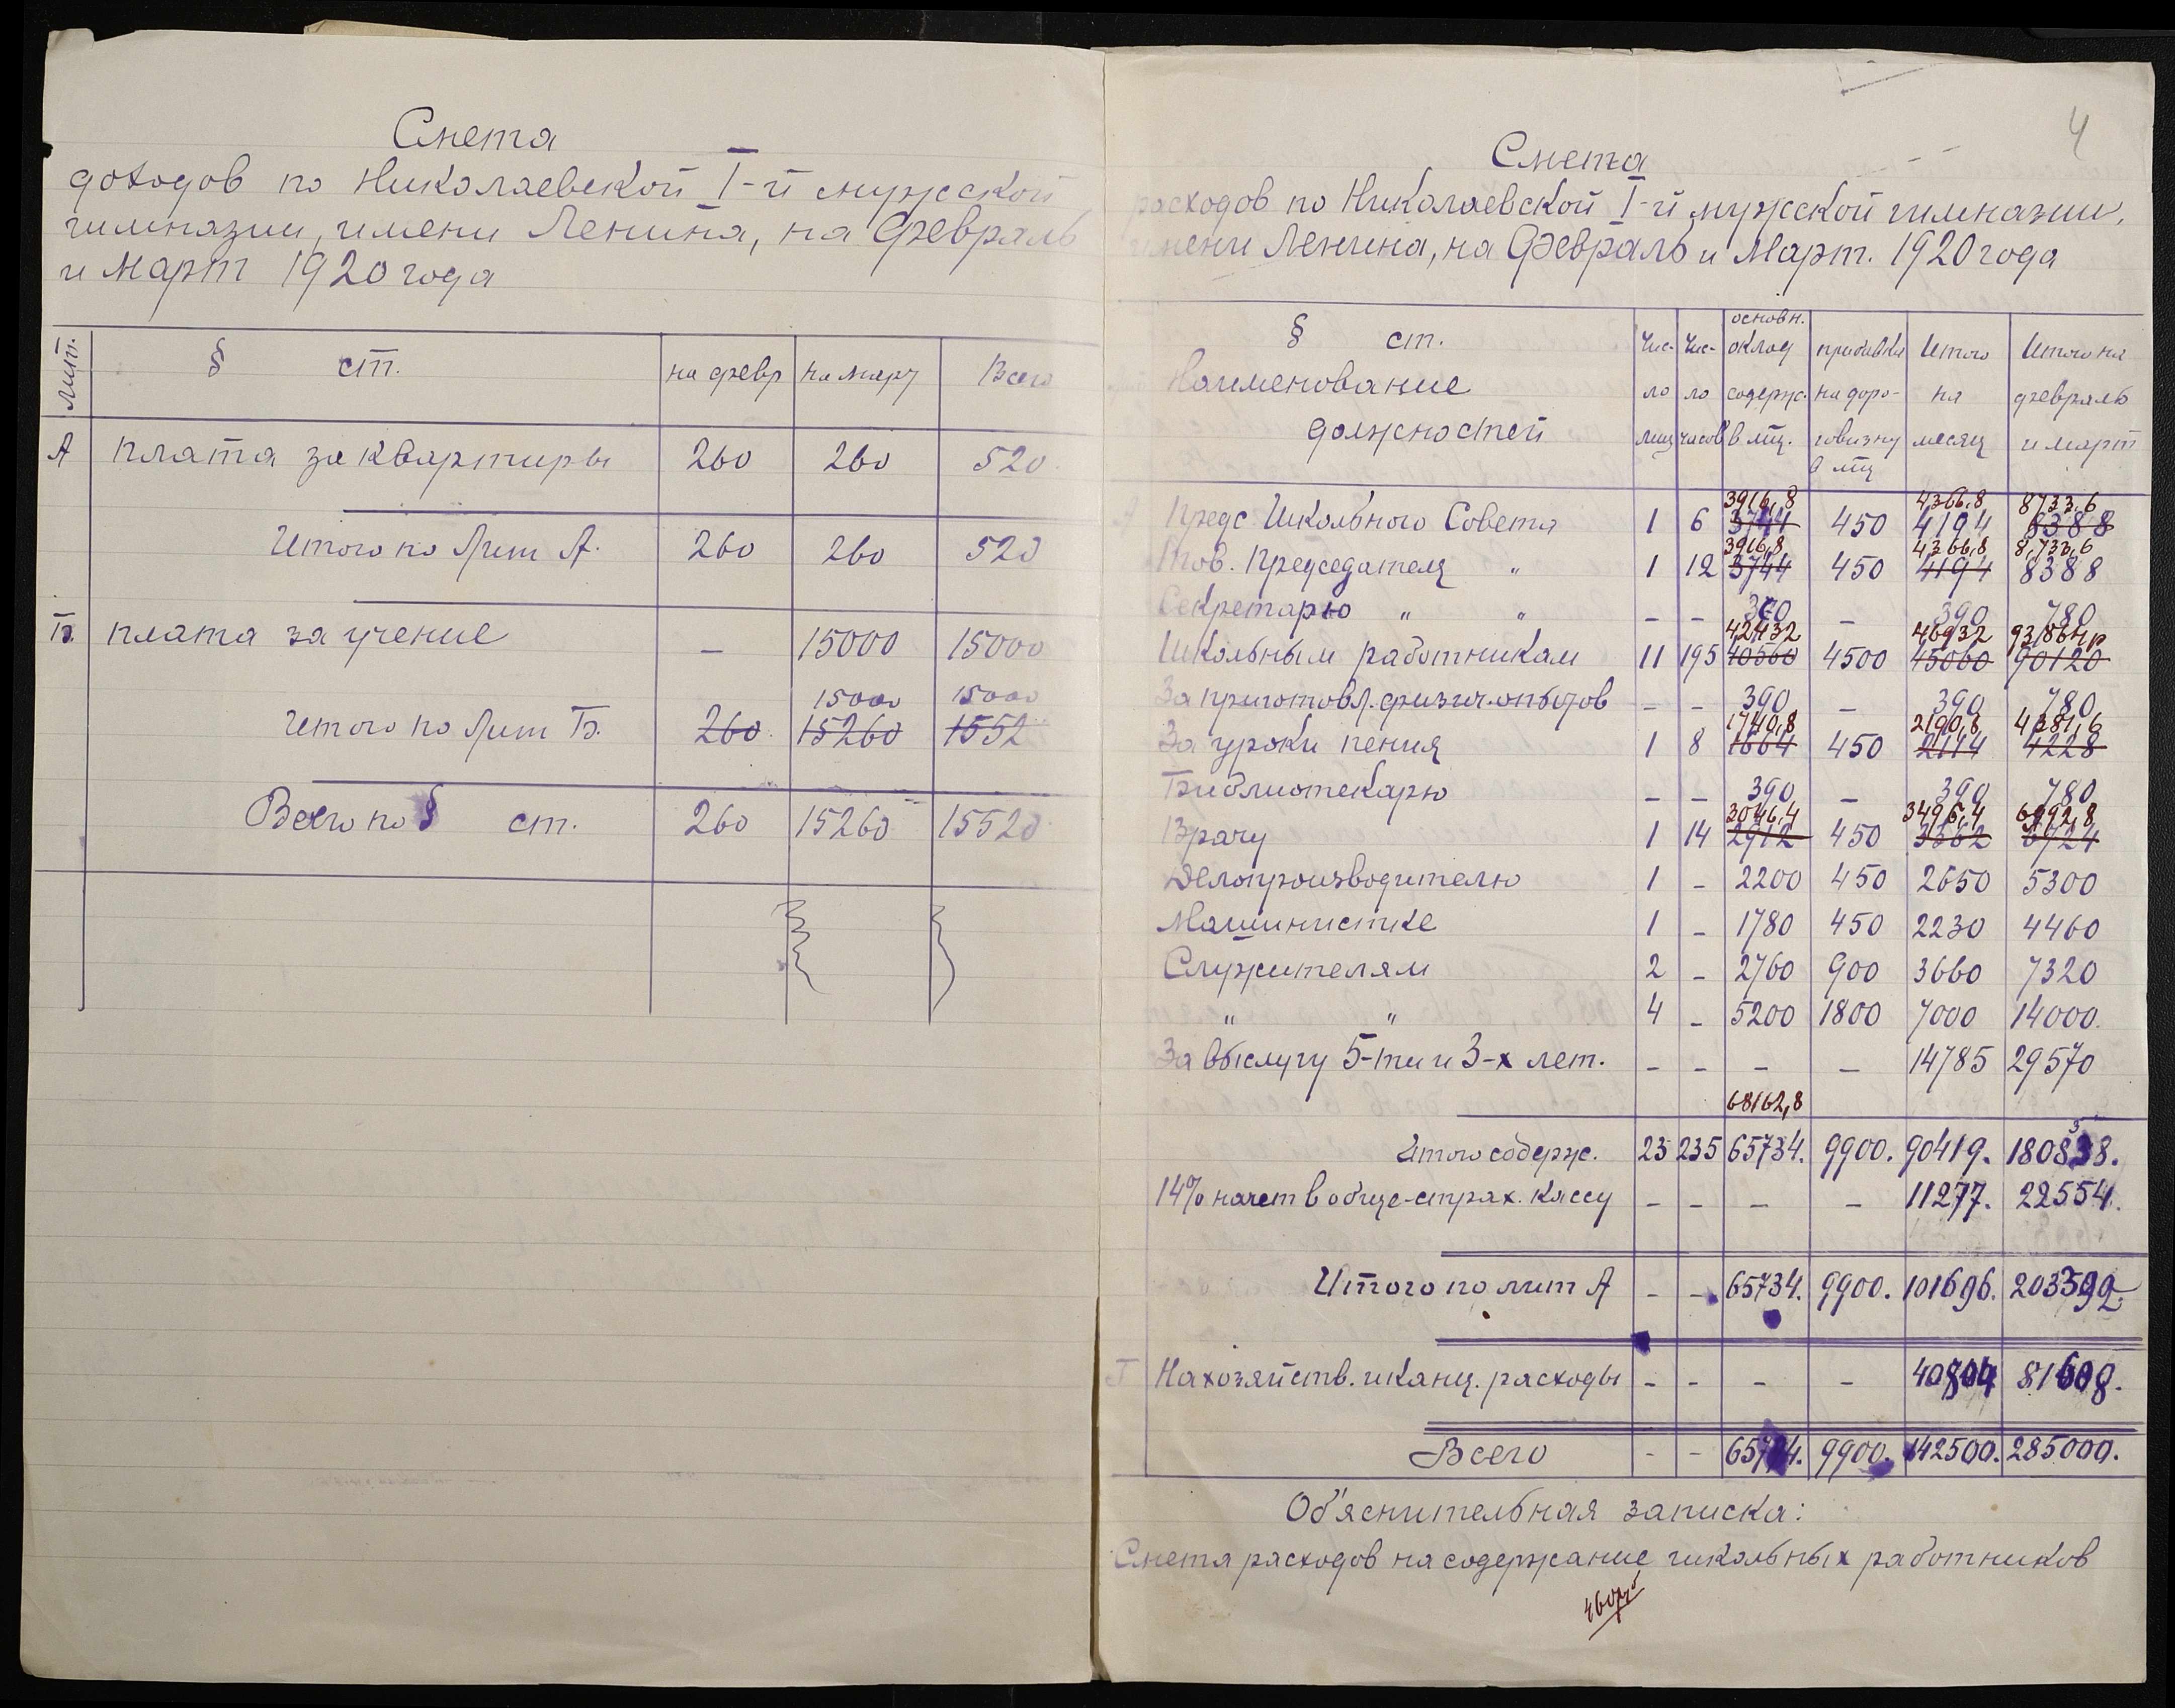 Смета
доходов по Николаевской I-й мужской
гимназии, имени Ленина, на Февраль
и Март 1920 года
Лит. § ст. на февр на март Всего
А плата за квартиры 260 260 520
Итого по Лит А. 260 260 520
Б. плата за учение — 15000 15000
15000 15000
Итого по Лит Б. 260 15260 1552
Всего по § ст. 260 15260 15520
4
Смета
расходов по Николаевской I-й мужской гимназии,
имени Ленина, на Февраль и Март. 1920 года
§ ст. Наименование должностей
Число лиц
Число часов
основн. оклад содерж. в мц.
прибавка на дороговизну в мц
Итого на месяц
Итого на февраль и март
3916,8 4366,8 8733,6
А Предс Школьного Совета 1 6 3744 450 4194 8388
3916,8 4366,8 8,733,6
Тов. Председателя " 1 12 3744 450 4194 8388
Секретарю " " — — 390 — 390 780
42432 46932 93864
Школьным работникам 11 195 40560 4500 45060 90120
За приготовл. физич. опытов — — 390 — 390 780
1740,8 2190,8 4381,6
За уроки пения 1 8 1664 450 2114 4228
Библиотекарю — — 390 — 390 780
3046,4 3496,4 6992,8
Врачу 1 14 2912 450 3362 6724
Делопроизводителю 1 - 2200 450 2650 5300
Машинистке 1 - 1780 450 2230 4460
Служителям 2 - 2760 900 3660 7320
" " 4 - 5200 1800 7000 14000.
За выслугу 5-ти и 3-х лет. — — — — 14785 29570
68162,8
Итого содерж. 23 235 65734. 9900. 90419. 180838.
14% начет в обще-страх. кассу — — — — 11277. 22554.
Итого по лит А — — 65734. 9900. 101696. 203392.
Г На хозяйств. и канц. расходы - - - - 40804 81608.
Всего - - 65734. 9900. 142500. 285000.
Об'яснительная записка:
Смета расходов на содержание школьных работников